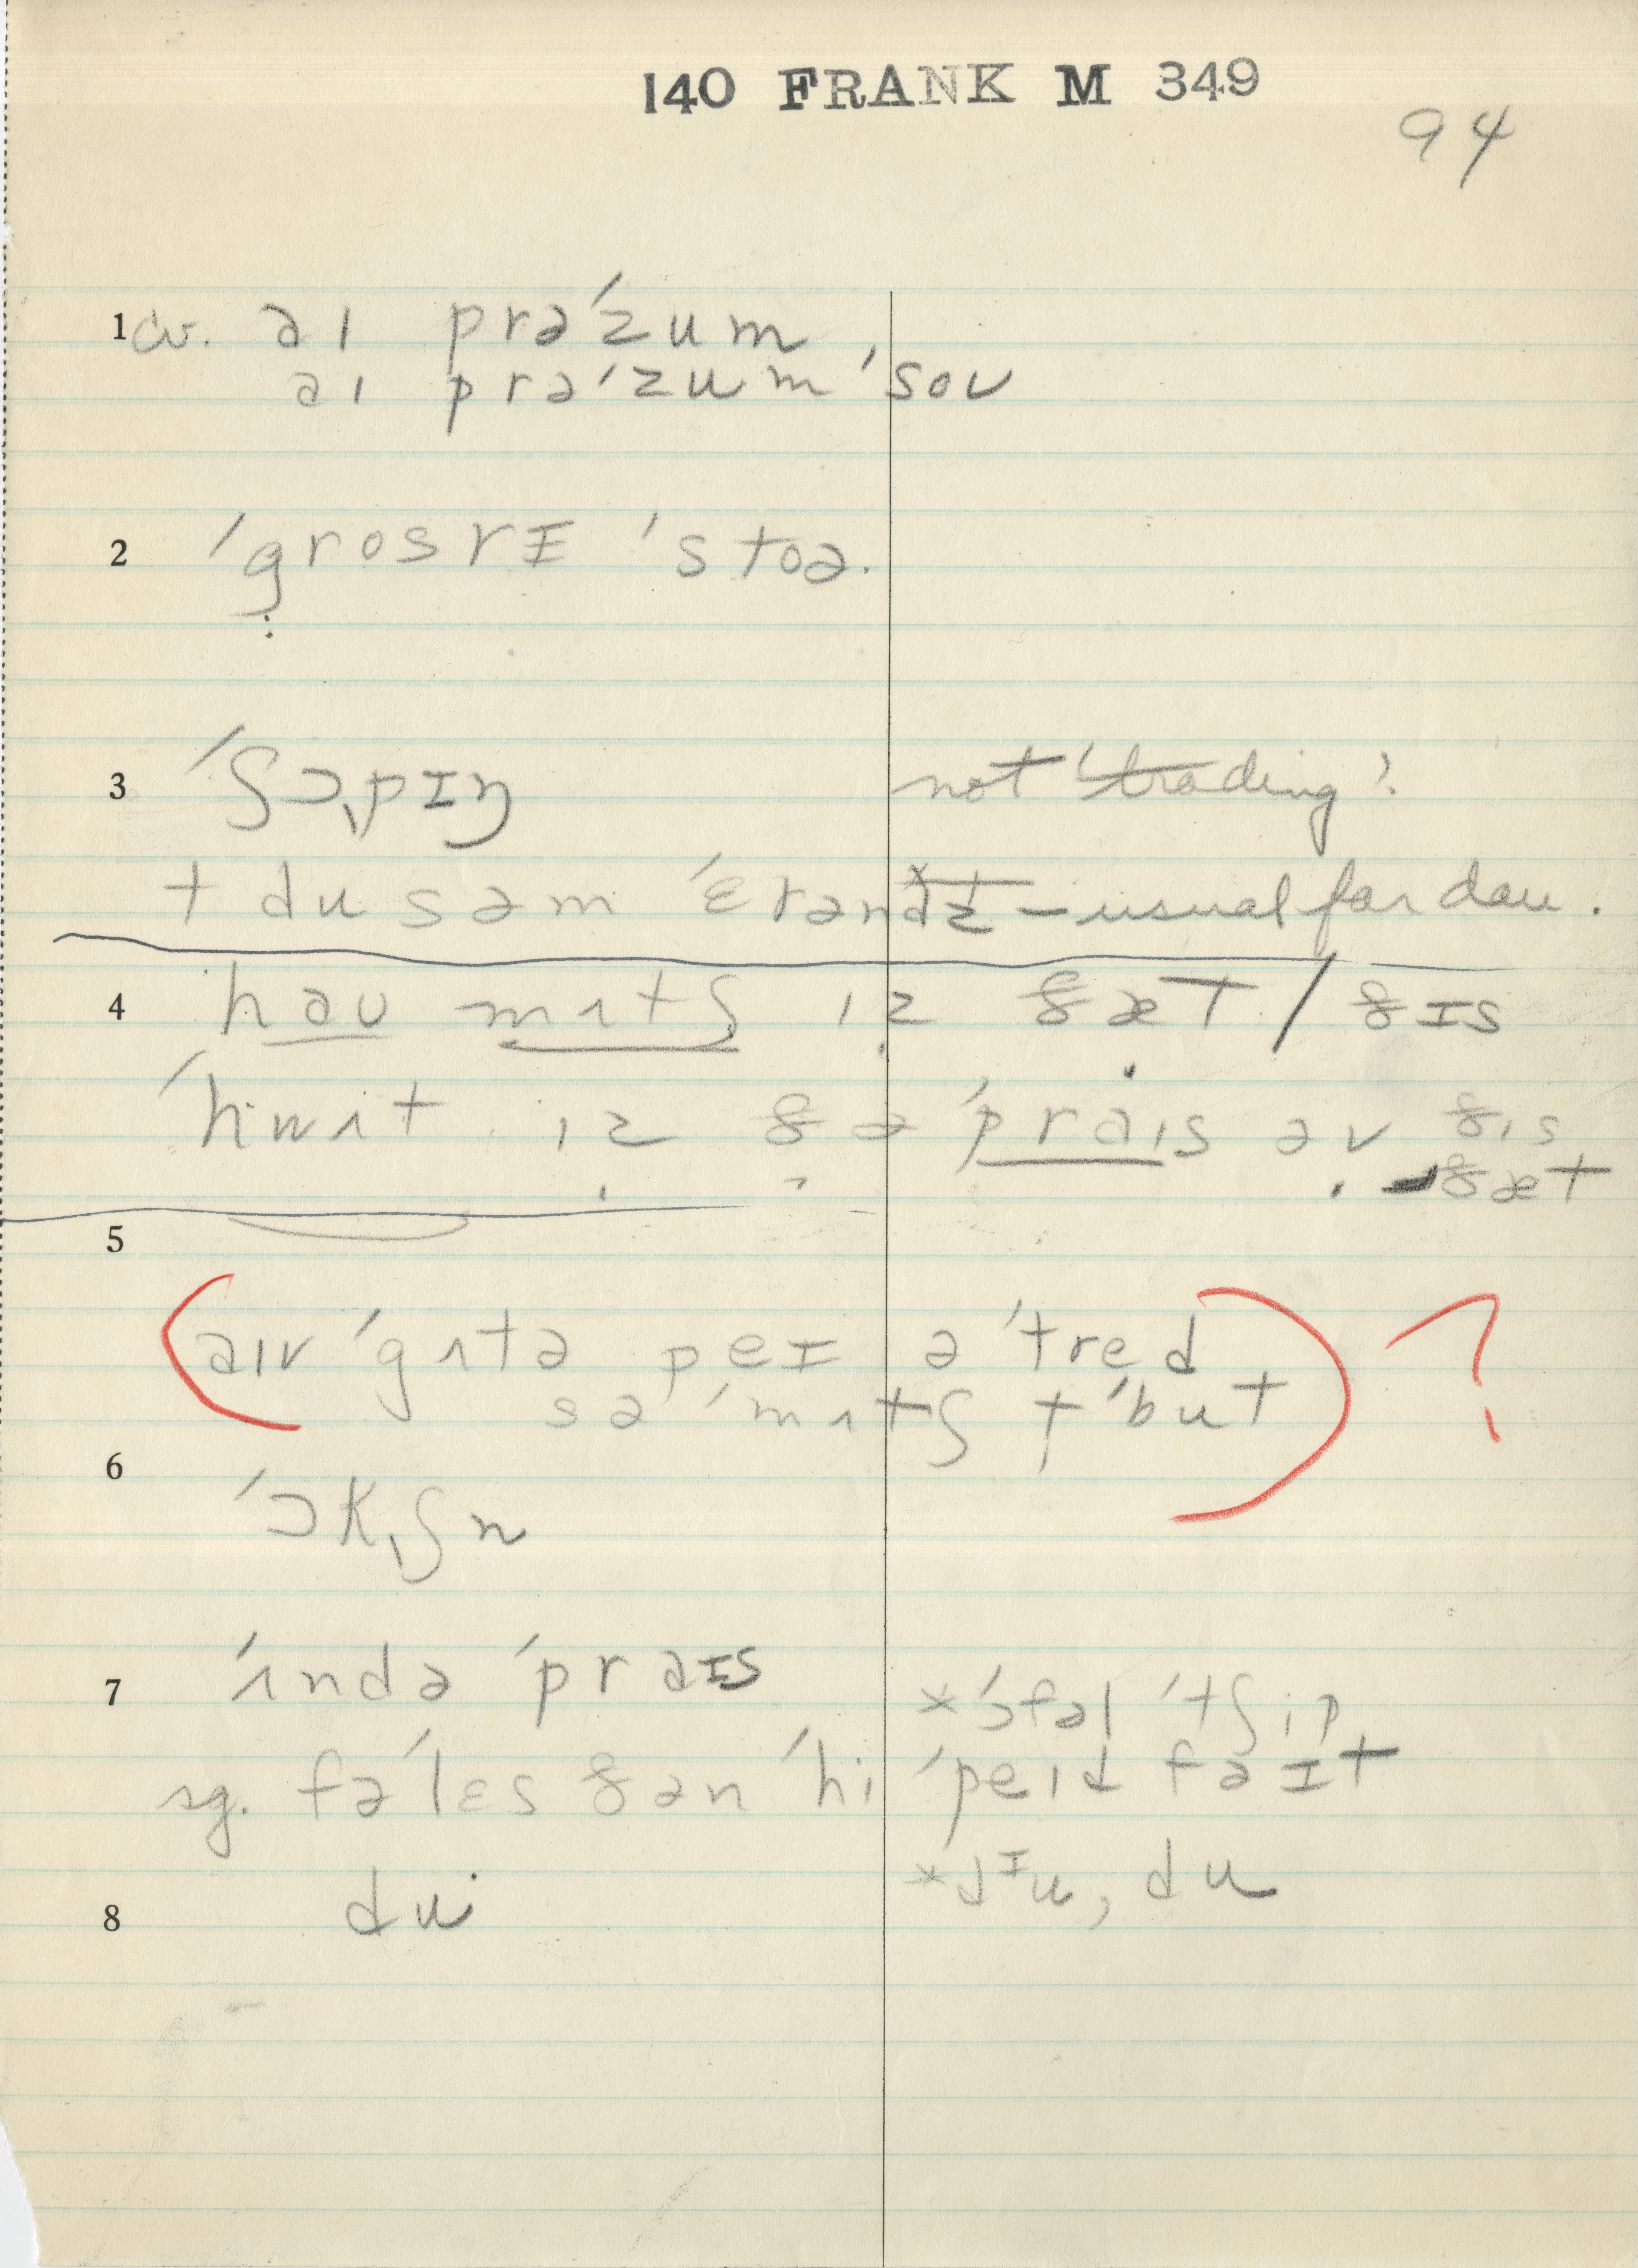 140 FRANK M 349
94
1 cv. aɪ prəˈzum
aɪ prəˈzum ˈsoʊ
2 ˈgrosrɪ ˈstoə.
3 ˈʃɔpɪŋ not 'trading'
t du səm ˈɛrəndz – usual for dau.
4 haʊ mʌtʃ ɪz ðæt / ðɪs
ˈhwʌt ɪz ðə ˈpraɪs əv ðɪs
ðæt
5
aɪv ˈgʌtə peɪ ə ˈtred
sə ˈmʌtʃ t ˈbut ?
6
ˈɔkʃn
7 ˈʌndə ˈpraɪs *ˈɔfəl ˈtʃip
sg. fə ˈlɛs ðən ˈhi ˈpeɪd fə ɪt
8 du *dɪu, du